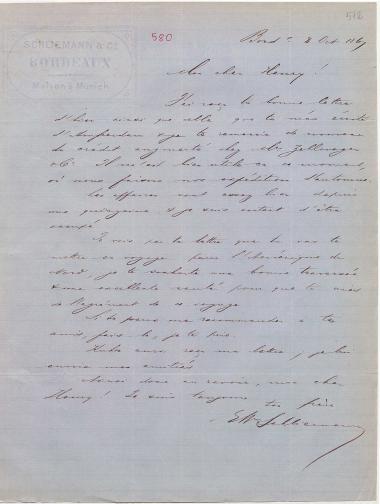 580
512
SCHLIEMANN & Cº
BORDEAUX
Maison à Munich
Bordx 8 Oct 1867
Mon cher Henry!
J'ai reçu ta bonne lettre
d'hier ainsi que celle que tu m'as écrite
d'Amsterdam & je te remercie
de crédit augmenté chez
& Cº. Il m'est bien utile en ce moment,
où nous faisons nos expéditions d'automne.
Les affaires vont assez bien depuis
une quinzaine & je suis content d'être
Je vois par ta lettre que tu vas te
mettre en voyage pour l'Amérique du
Nord, je te souhaite une bonne traversée
& une excellente santé pour que tu aies
de l'agrément de ce voyage.
Si tu peux me recommander à tes
amis, fais le, je te prie.
ma lettre, je lui
envoie mes amitiés
Ainsi donc au revoir, mon cher
Henry! Je suis toujours
ton frère
Schliemann